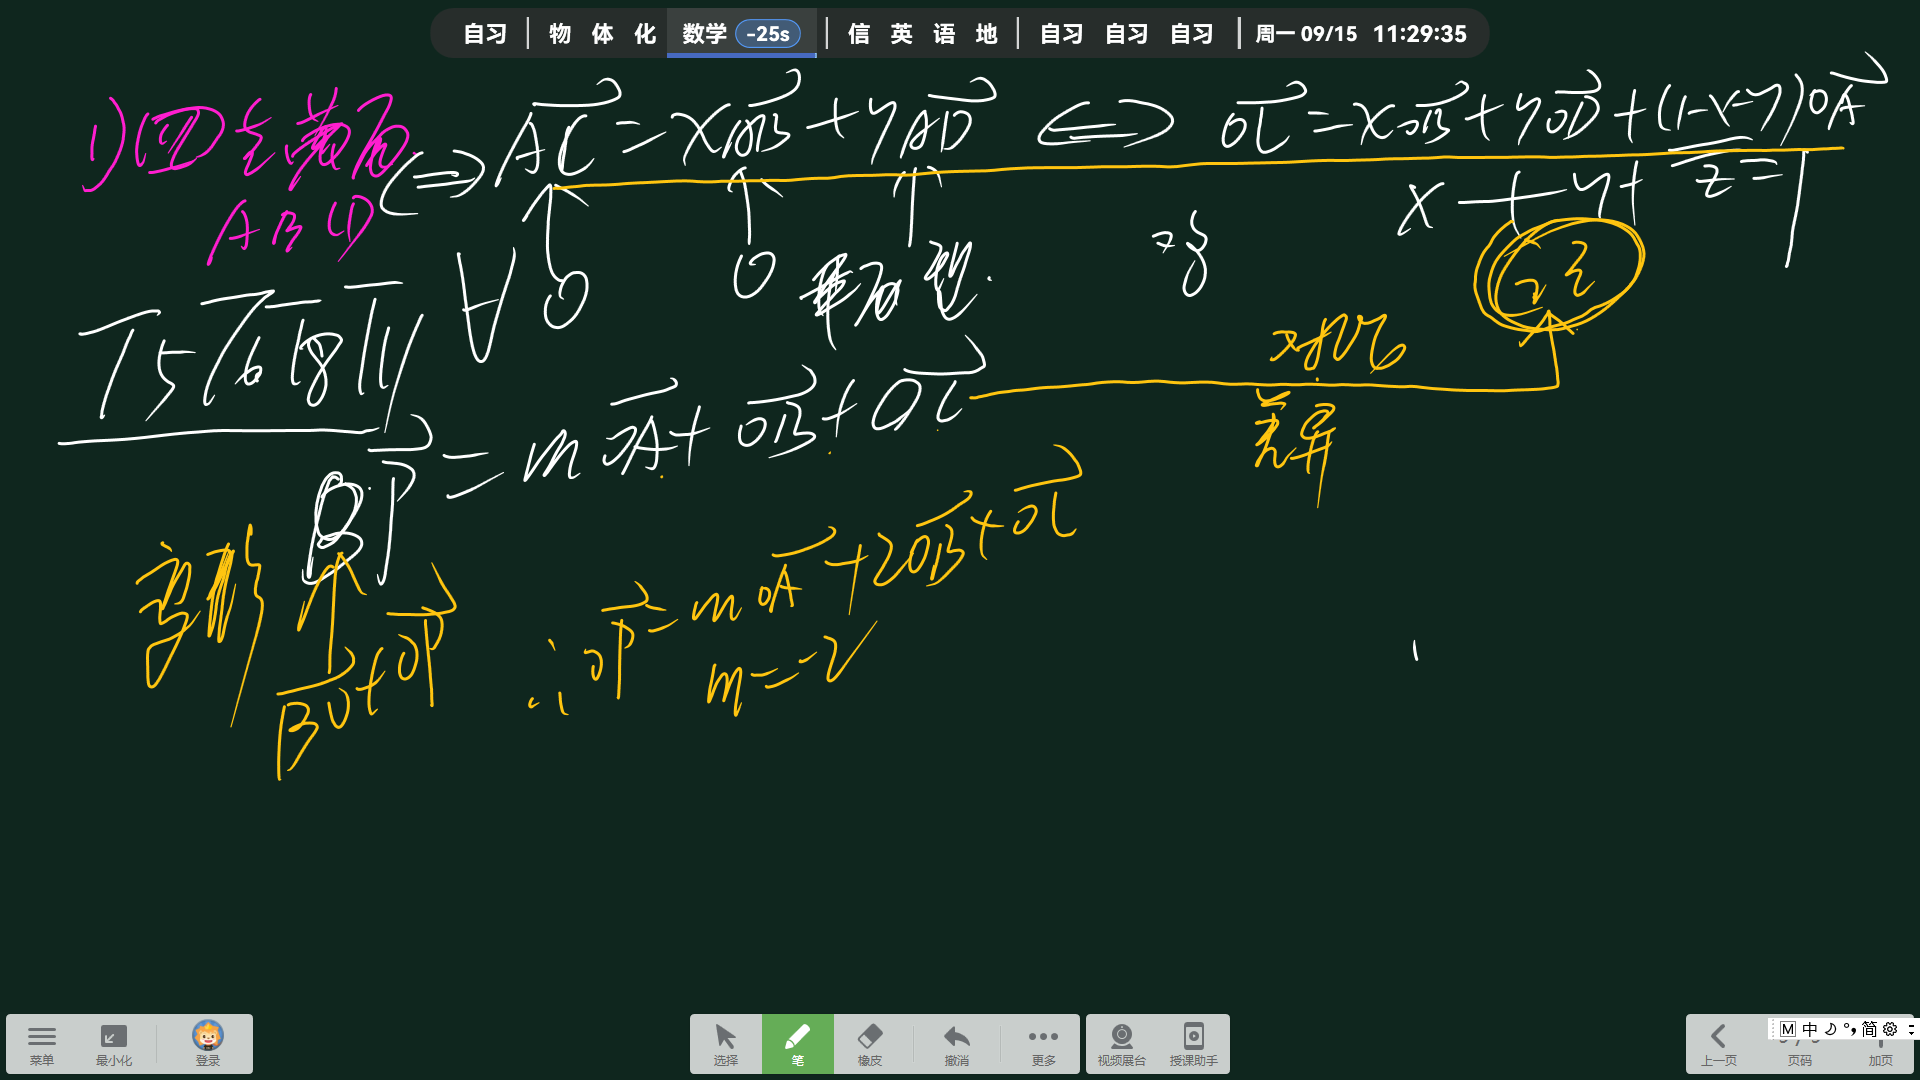 自习 | 物 体 化 数学 -25s | 信 英 语 地 | 自习 自习 自习 | 周一 09/15 11:29:35
1) 四点共面 ⇔ AC = xAB + yAD ⇔ OC = xOB + yOD + (1-x-y)OA
A B C D
x + y + z = 1
∀ O O 基石型.
T5 T6 T8 T11
BP = mOA + OB + OC
差异
变形
BO + OP
∴ OP = mOA + 2OB + OC
m = -2
菜单 最小化 登录 选择 笔 橡皮 撤消 更多 视频展台 授课助手 上一页 页码 加页
M 中 简